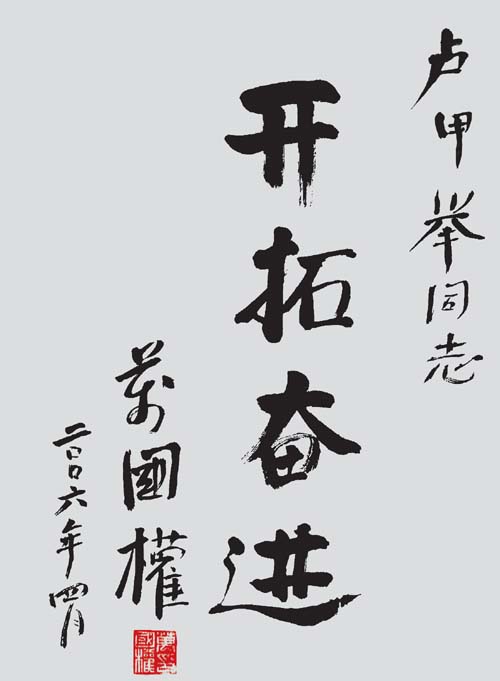 卢甲举同志
开拓奋进
萬國權
二〇〇六年四月